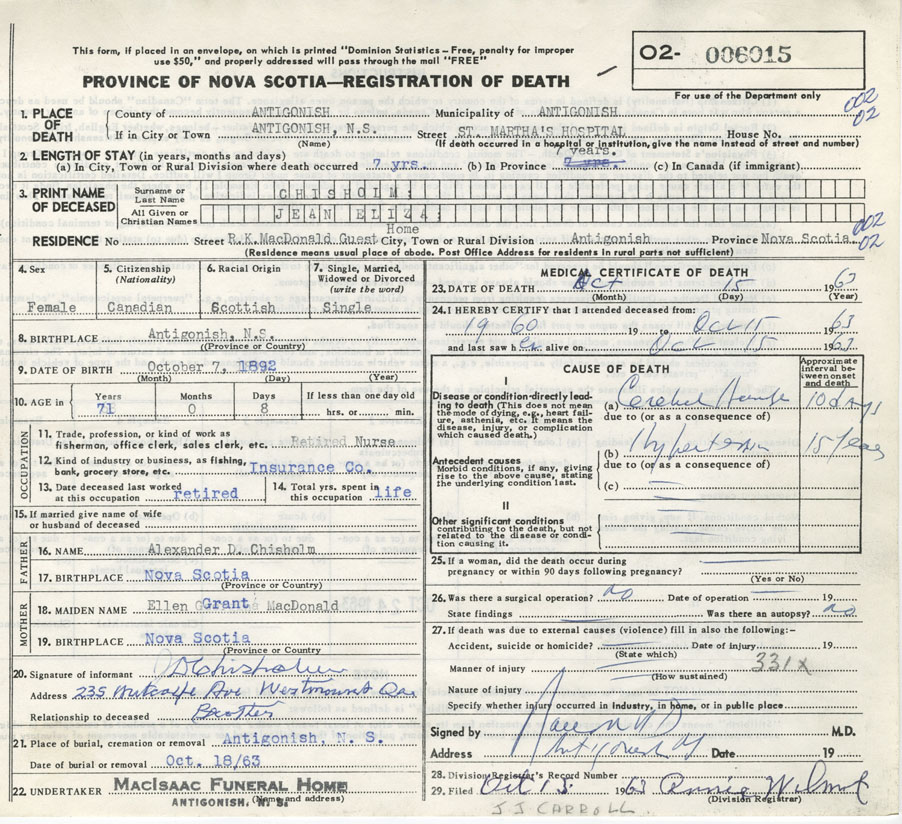 This form, if placed in an envelope, on which is printed "Dominion Statistics – Free, penalty for improper
use $50," and properly addressed will pass through the mail "FREE"
PROVINCE OF NOVA SCOTIA—REGISTRATION OF DEATH
O2- 006015
For use of the Department only
1. PLACE OF DEATH
County of ANTIGONISH Municipality of ANTIGONISH 002
If in City or Town ANTIGONISH, N.S. Street ST. MARTHA'S HOSPITAL House No. 02
(Name) (If death occurred in a hospital or institution, give the name instead of street and number)
2. LENGTH OF STAY (in years, months and days) 7 years.
(a) In City, Town or Rural Division where death occurred 7 yrs. (b) In Province 7 yrs. (c) In Canada (if immigrant)
3. PRINT NAME OF DECEASED
Surname or Last Name CHISHOLM:
All Given or Christian Names JEAN ELIZA:
Home 002
RESIDENCE No Street R.K.MacDonald Guest City, Town or Rural Division Antigonish Province Nova Scotia 02
(Residence means usual place of abode. Post Office Address for residents in rural parts not sufficient)
4. Sex
Female
5. Citizenship (Nationality)
Canadian
6. Racial Origin
Scottish
7. Single, Married, Widowed or Divorced (write the word)
Single
8. BIRTHPLACE Antigonish, N.S.
((Province or Country)
9. DATE OF BIRTH October 7, 1892
(Month) (Day) (Year)
10. AGE in Years Months Days If less than one day old
71 0 8 hrs. or min.
OCCUPATION
11. Trade, profession, or kind of work as
fisherman, office clerk, sales clerk, etc. Retired Nurse
12. Kind of industry or business, as fishing,
bank, grocery store, etc. Insurance Co.
13. Date deceased last worked
at this occupation retired
14. Total yrs. spent in
this occupation life
15. If married give name of wife
or husband of deceased
FATHER
16. NAME Alexander D. Chisholm
17. BIRTHPLACE Nova Scotia
(Province or Country)
MOTHER
18. MAIDEN NAME Ellen Grant MacDonald
19. BIRTHPLACE Nova Scotia
(Province or Country)
20. Signature of informant D Chisholm
Address 235 Metcalfe Ave Westmount Que
Relationship to deceased Brother
21. Place of burial, cremation or removal Antigonish, N. S.
Date of burial or removal Oct. 18/63
22. UNDERTAKER MACISAAC FUNERAL HOME
ANTIGONISH, N. S.
(Name and address)
MEDICAL CERTIFICATE OF DEATH
23. DATE OF DEATH Oct 15 1963
(Month) (Day) (Year)
24. I HEREBY CERTIFY that I attended deceased from:
1960 19 to Oct 15 1963
and last saw her alive on Oct 15 1963
CAUSE OF DEATH
Approximate interval between onset and death
I
Disease or condition directly leading to death (This does not mean
the mode of dying, e.g., heart failure, asthenia, etc. It means the
disease, injury, or complication which caused death.)
(a) Cerebral 10 days
due to (or as a consequence of)
(b) Hypertension 15 years
due to (or as a consequence of)
(c)
Antecedent causes
Morbid conditions, if any, giving
rise to the above cause, stating
the underlying condition last.
II
Other significant conditions
contributing to the death, but not
related to the disease or condition causing it.
25. If a woman, did the death occur during
pregnancy or within 90 days following pregnancy?
(Yes or No)
26. Was there a surgical operation? no Date of operation 19
State findings Was there an autopsy? no
27. If death was due to external causes (violence) fill in also the following:–
Accident, suicide or homicide? Date of injury 19
(State which) 331x
Manner of injury
(How sustained)
Nature of injury
Specify whether injury occurred in industry, in home, or in public place
Signed by M.D.
Address Antigonish Date 19
28. Division Registrar's Record Number
29. Filed Oct 15 1963 Annie Wilmot
(Division Registrar)
J.J CARROLL